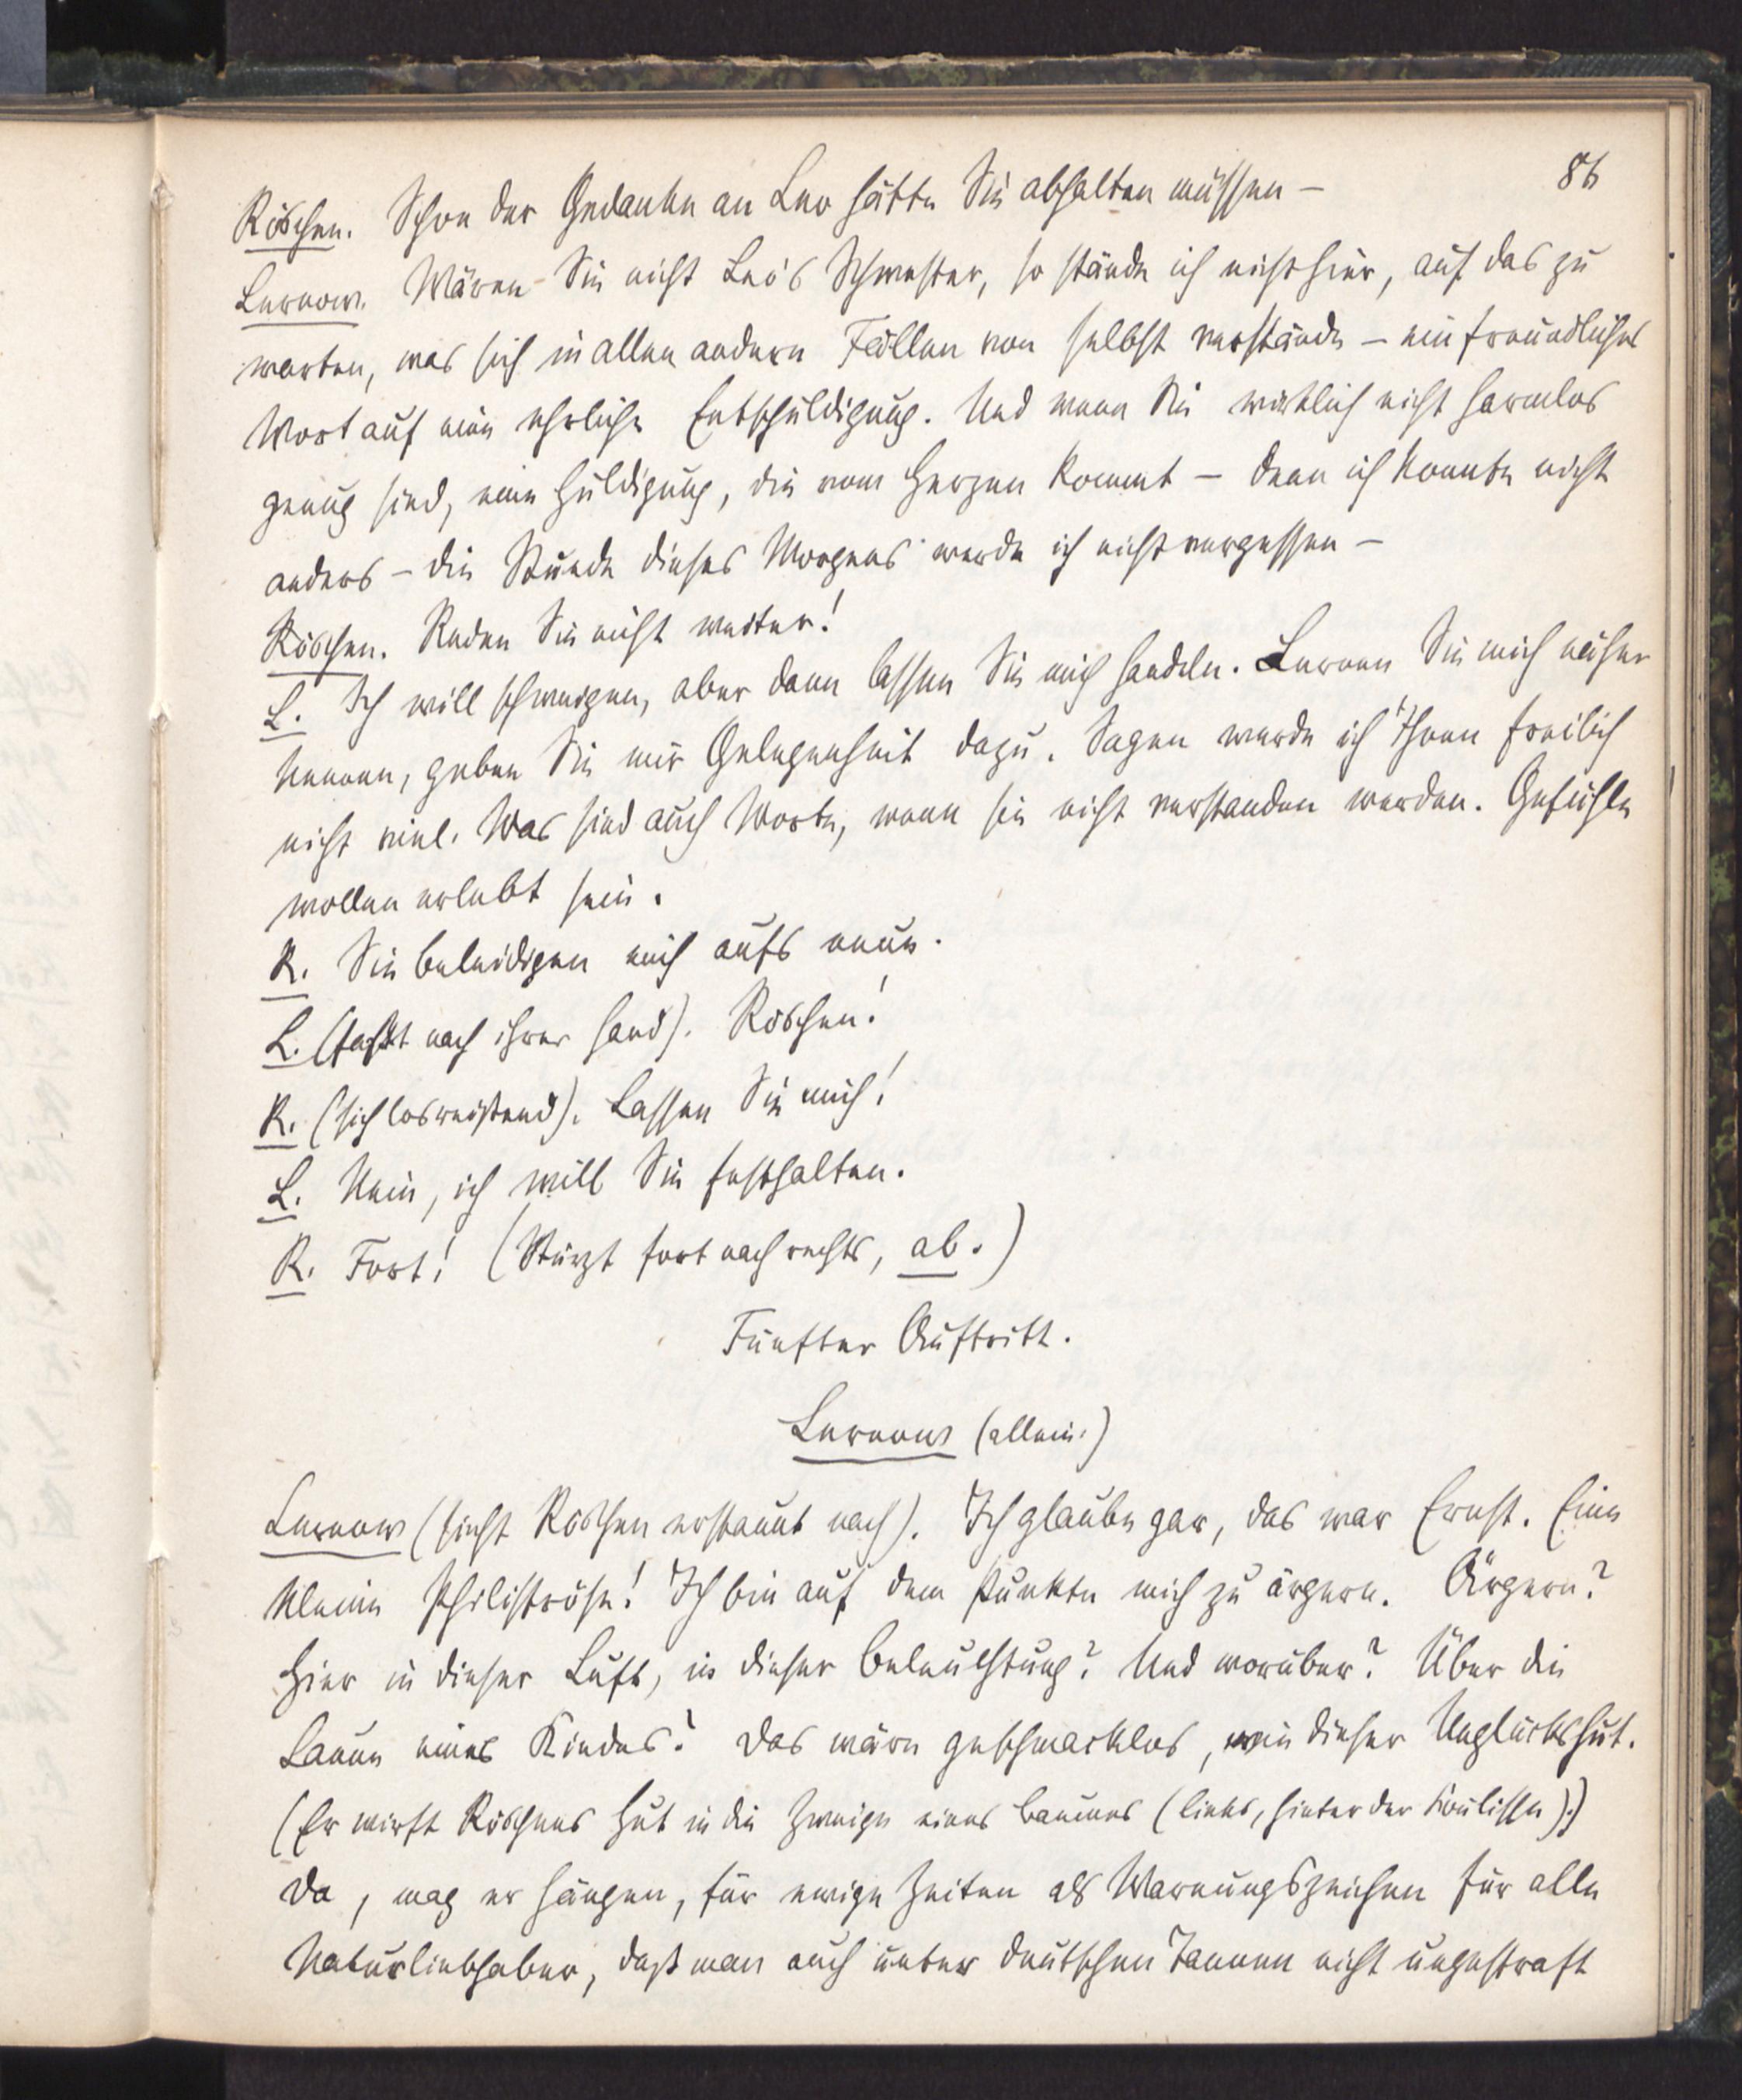 86
Röschen. Schon der Gedanke an Leo hätte Sie abhalten müssen –
Lernow. Wären Sie nicht Leo's Schwester, so stände ich nicht hier, auf das zu
warten, was sich in allen andern Fällen von selbst verstände – ein freundliches
Wort auf eine ehrliche Entschuldigung. Und wenn Sie wirklich nicht harmlos
genug sind, eine Huldigung, die vom Herzen kommt – denn ich konnte nicht
anders – die Stunde dieses Morgens werde ich nicht vergessen –
Röschen. Reden Sie nicht weiter!
L. Ich will schweigen, aber dann lassen Sie mich handeln. Lernen Sie mich näher
kennen, geben Sie mir Gelegenheit dazu. Sagen werde ich Ihnen freilich
nicht viel. Was sind auch Worte, wenn sie nicht verstanden werden. Gefühle
wollen erlebt sein.
R. Sie beleidigen mich aufs neue.
L. (faßt nach ihrer Hand). Röschen!
R. (sich losreißend). Lassen Sie mich!
L. Nein, ich will Sie festhalten.
R. Fort! (Stürzt fort nach rechts, ab.)
Fünfter Auftritt.
Lernow (allein.)
Lernow (sieht Röschen erstaunt nach). Ich glaube gar, das war Ernst. Eine
kleine Philiströse! Ich bin auf dem Punkte mich zu ärgern. Ärgern?
Hier in dieser Luft, in dieser Beleuchtung? Und worüber? Über die
Laune eines Kindes? Das wäre geschmacklos, wie dieser Unglückshut.
(Er wirft Röschens Hut in die Zweige eines Baumes (links, hinter der Koulisse).)
Da, mag er hängen, für ewige Zeiten als Warnungszeichen für alle
Naturliebhaber, daß man auch unter deutschen Tannen nicht ungestraft